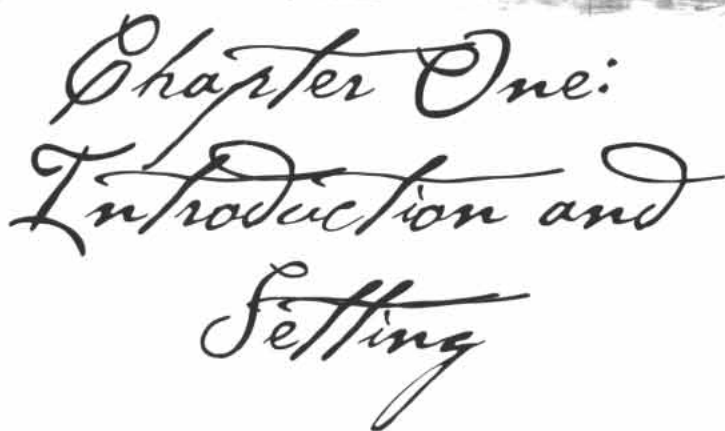 Chapter One:
Introduction and
Setting